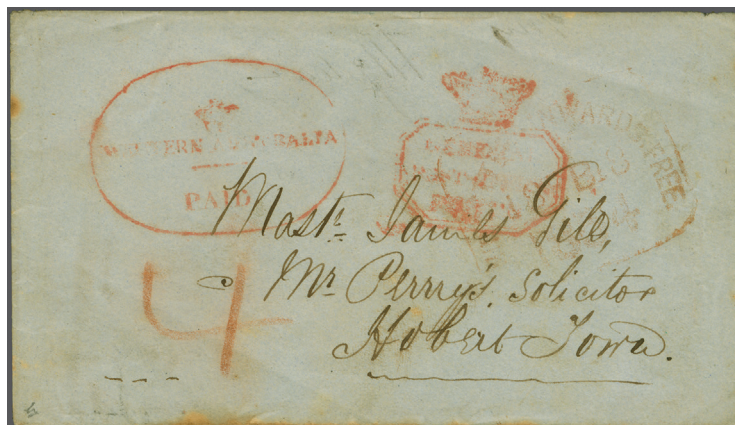 WESTERN AUSTRALIA
PAID
GENERAL
POST OFFICE
INWARDS FREE
Mastr. James Gill,
Mr Perry's, Solicitor
Hobert Town.
4